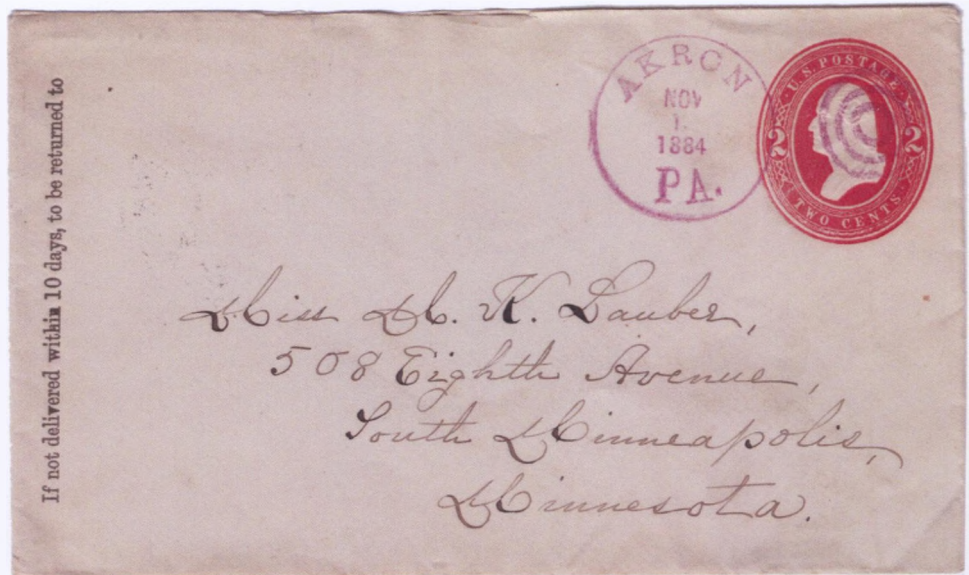 If not delivered within 10 days, to be returned to
AKRON
NOV
1
1884
PA.
U.S. POSTAGE
2 2
TWO CENTS
Miss M. K. Lauber,
508 Eighth Avenue,
South Minneapolis,
Minnesota.